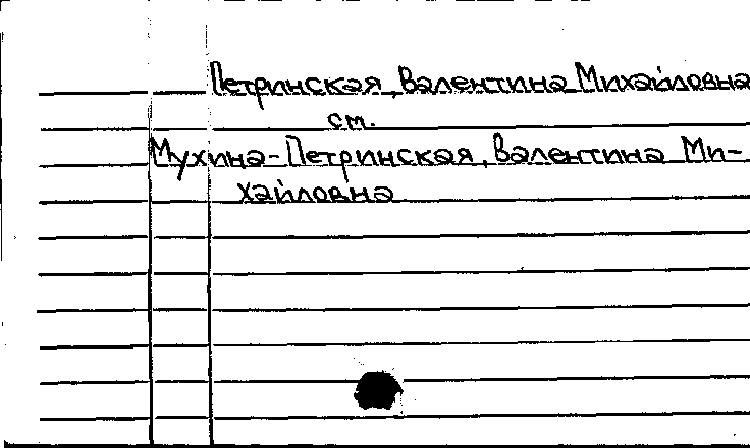 Петринская, Валентина Михайловна
см.
Мухина-Петринская, Валентина Ми-
хайловна